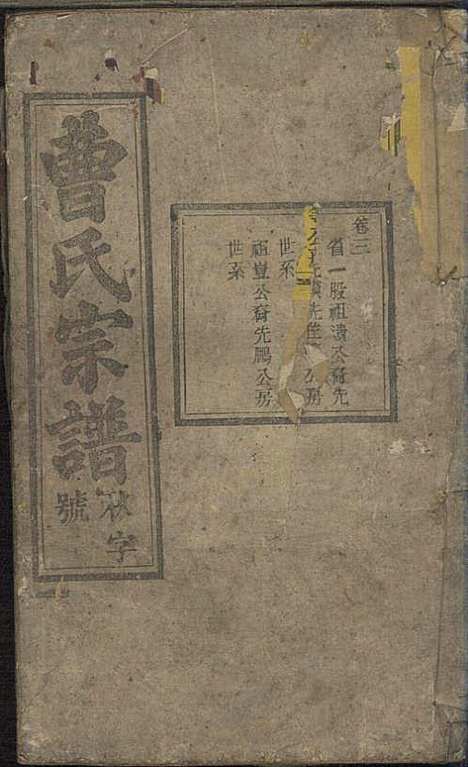 曹氏宗譜
秋字
號
卷三
省一股祖瀆公裔先
先進公房
世系
祖豈公裔先鵬公房
世系